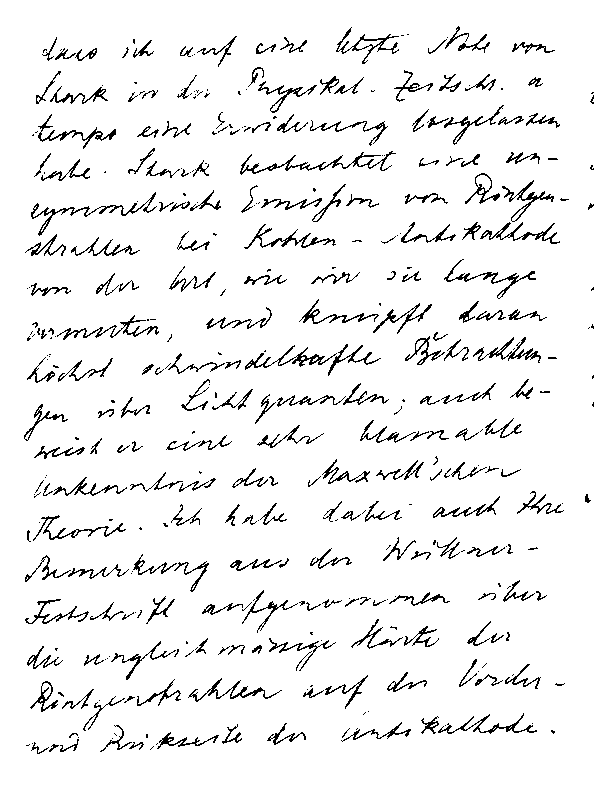 dass ich auf eine letzte Note von
Stark in der Physikal. Zeitschr. a
tempo eine Erwiderung losgelassen
habe. Stark beobachtet eine un-
symmetrische Emission von Röntgen-
strahlen bei Kohlen-Antikathode
von der Art, wie wir sie lange
vermuten, und knüpft daran
höchst schwindelhafte Betrachtun-
gen über Lichtquanten; auch be-
weist er eine sehr blamable
Unkenntnis der Maxwell'schen
Theorie. Ich habe dabei auch Ihre
Bemerkung aus der Wüllner-
Festschrift aufgenommen über
die ungleichmässige Härte der
Röntgenstrahlen auf der Vorder-
und Rückseite der Antikathode.